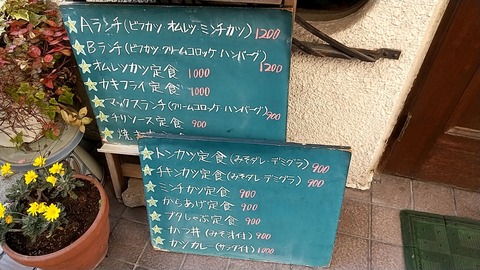 Aランチ(ビフカツ オムレツ ミンチカツ) 1200
Bランチ(ビフカツ クリームコロッケ ハンバーグ) 1200
オムレツカツ定食 1000
カキフライ定食 1000
マックスランチ(クリームコロッケ ハンバーグ) 900
チリソース定食 900
焼
トンカツ定食(みそダレ・デミグラ) 900
チキンカツ定食(みそダレ・デミグラ) 900
ミンチカツ定食 900
からあげ定食 900
ブタしゃぶ定食 900
カツ丼(みそ汁付) 900
カツカレー(サラダ付) 1000